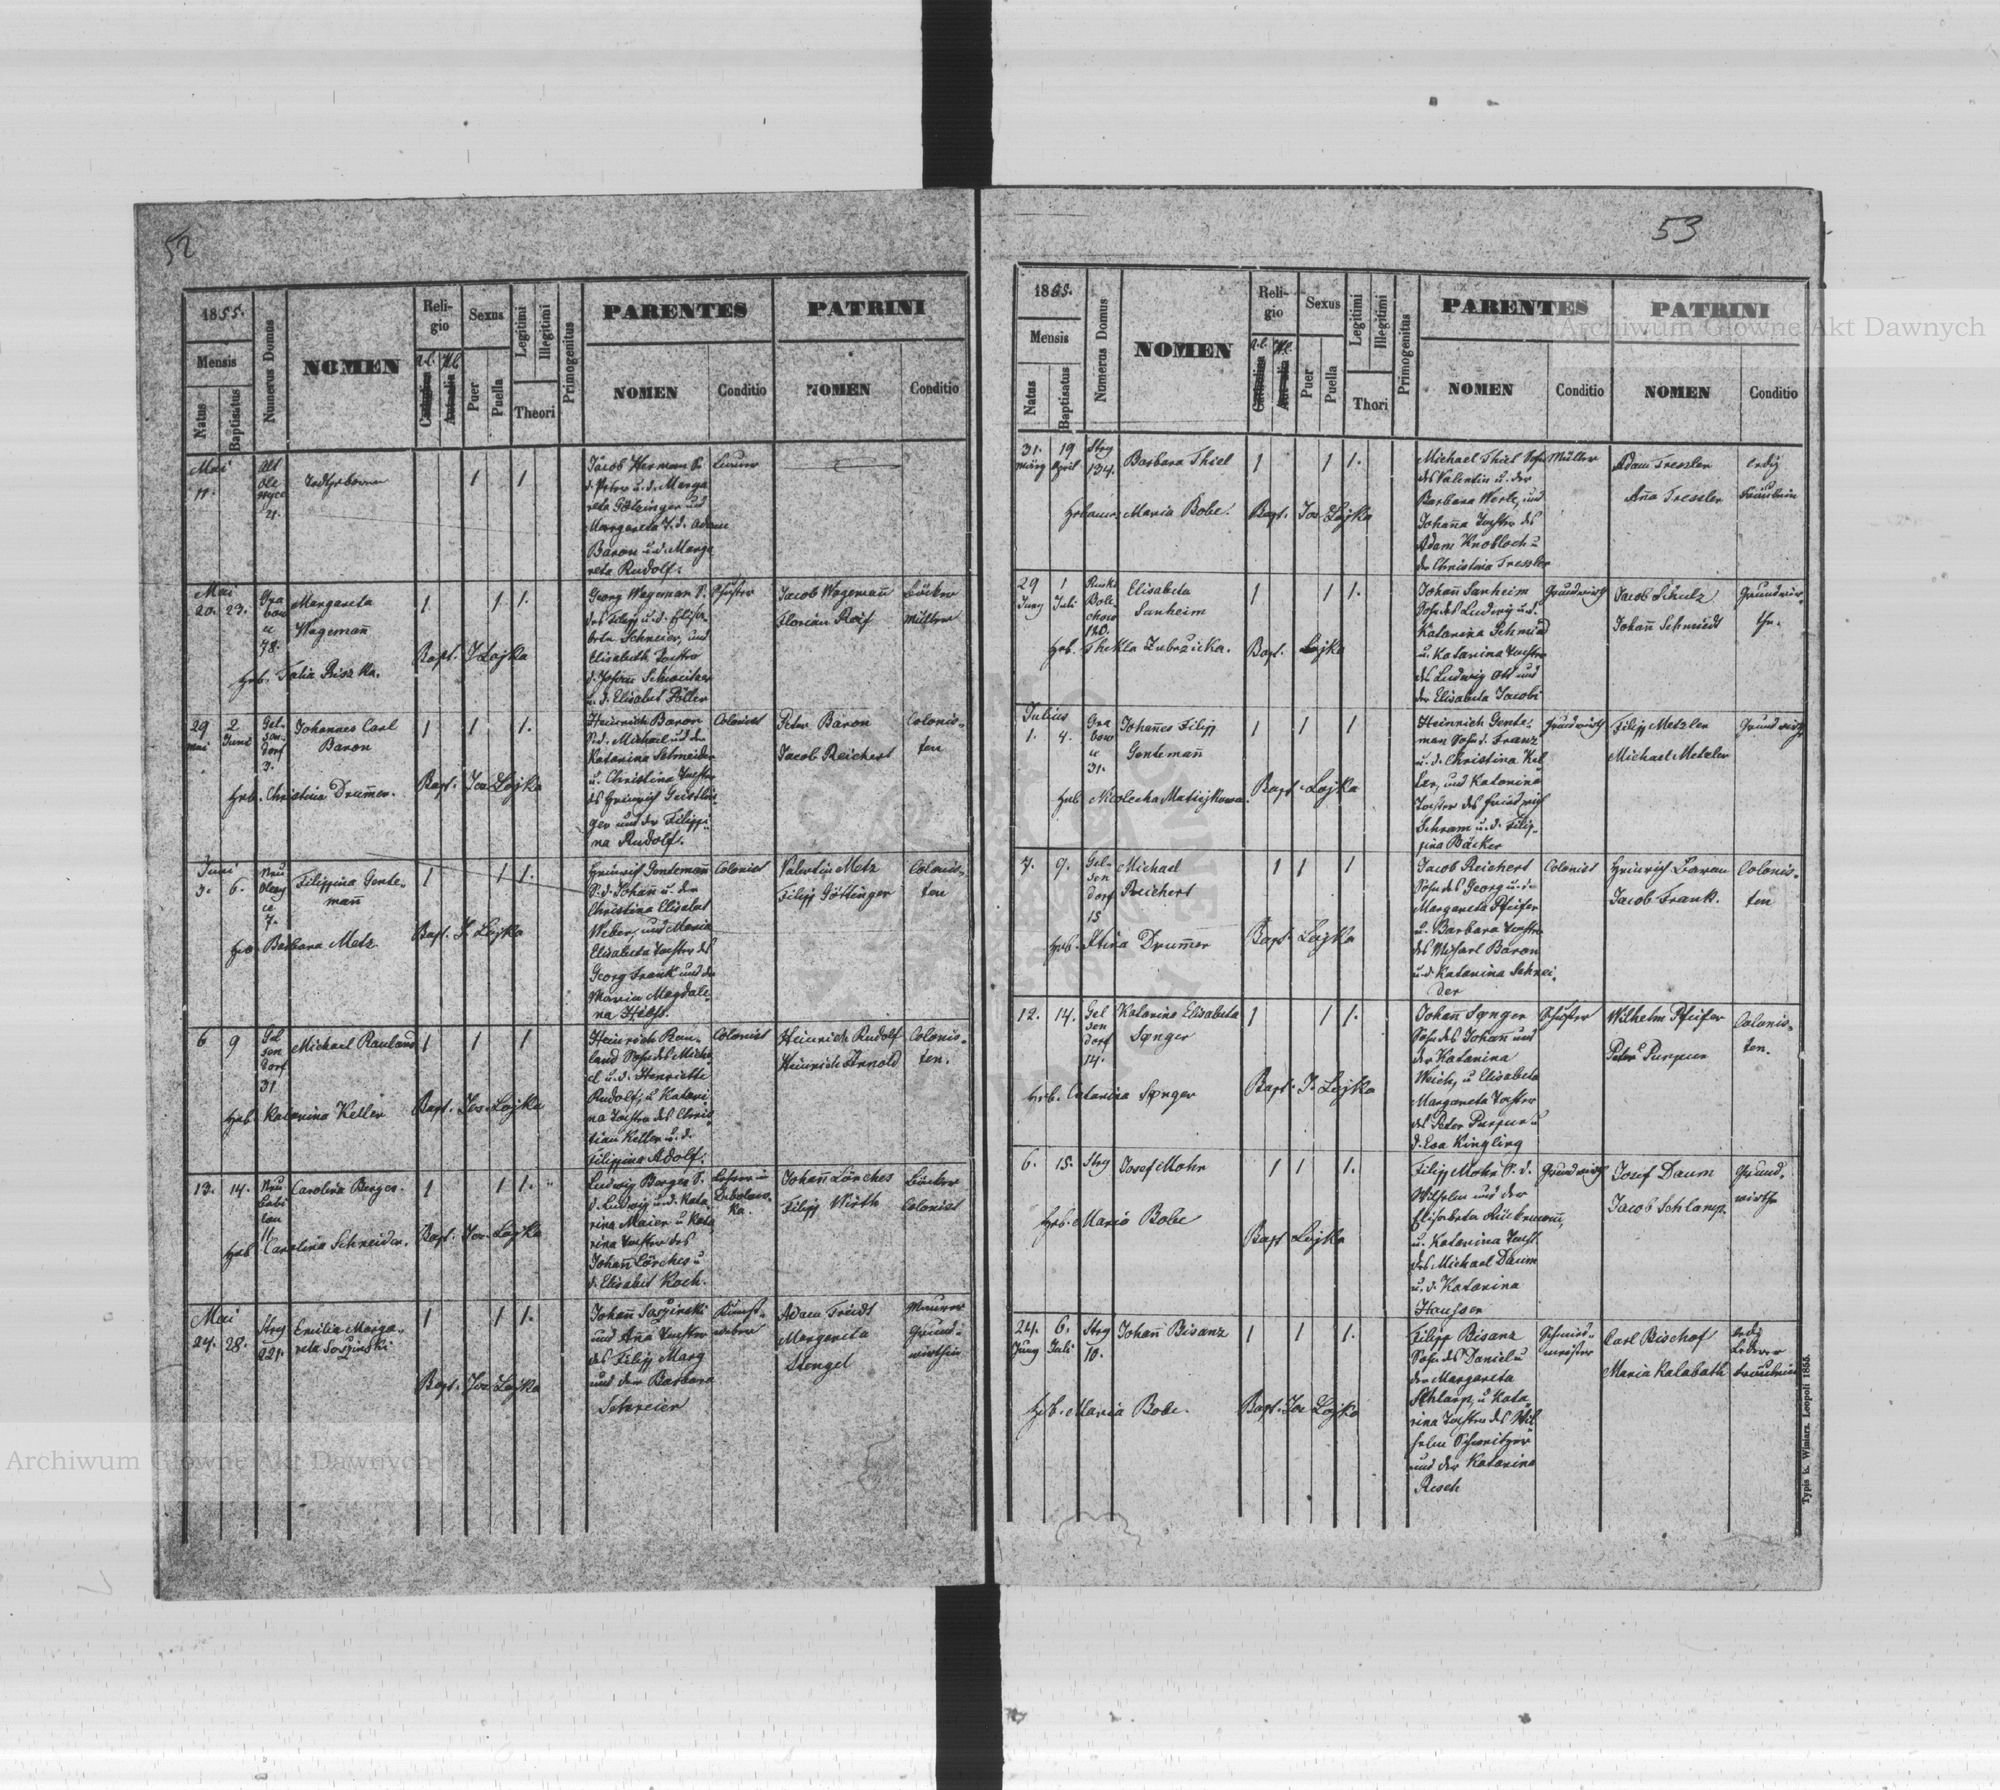 52
1855.
Mensis
Natus
Baptisatus
Numerus Domus
NOMEN
Reli-
gio
a.c.
H.c.
Sexus
Puer
Puella
Legitimi
Illegitimi
Theori
Primogenitus
PARENTES
NOMEN
Conditio
PATRINI
NOMEN
Conditio
Mai
11.
Alt
Ole
21.
Todtgeboren
1
1
Jacob Herman S.
d. Peter u. d. Marga
reta Götzinger und
Margareta T. d. Adam
Baron u. d. Marga
reta Rudolf.
Mai
20. 23.
Gra
bow
c
78.
Margareta
Wagemañ
1
1
1.
Hrb. Talia Riszka.
Bapt. J Lojka
Georg Wageman S.
des Josef u. d. Elisa
beta Schneier, und
Elisabeth Tochter
d. Johan Schweitzer
u. d. Elisabet Poller
Schuster
Jacob Wagemañ
Florian Reif
Bäcker
Müller
29
Mai
2.
Juni
Gel-
sen-
dorf
3.
Johannes Carl
Baron
1
1
1.
Hrb. Christina Drum̄er.
Bapt. Jos Lojka
Heinrich Baron
S. d. Michael u. d.
Katarina Schneider
u. Christina Tochter
des Heinrich Geistlin-
ger und der Filippi-
na Rudolf.
Colonist
Peter Baron
Jacob Reichert
Colonis-
ten
Juni
3. 6.
Neu
Olexy
ce
7.
Filippina Gente-
mañ
1
1
1.
Hrb Barbara Metz
Bapt. J. Lojka
Heinrich Gentemañ
S. d. Johañ u. der
Christina Elisabet
Weber, und Maria
Elisabeta Tochter des
Georg Frank und der
Maria Magdale-
na Hilff.
Colonist
Valentin Metz
Filipp Göttinger
Colonis-
ten
6
9
Gel
sen
dorf
31
Michael Rauland
1
1
1
Hrb Katarina Keller
Bapt. Jos. Lojka
Heinrich Rau-
land Sohn des Micha
el u. d. Henriette
Rudolf, u Katari-
na Tochter des Chris-
tian Keller u. d.
Filippina Adolf.
Colonist
Heinrich Rudolf
Heinrich Arnold
Colonis-
ten.
13.
14.
Neu
Babi
lon
11
Carolina Berges.
1
1
1.
Hrb Carolina Schneider.
Bapt. Jos. Lojka
Ludwig Berges S.
d. Ludwig u. d. Kata
rina Maier u Kata
rina Tochter des
Johañ Lörches u
d. Elisabet Koch.
Lehrer in
Johañ Lörches
Filipp Wirth
Bäcker
Colonist
Mai
24. 28.
Stry
221.
Emilia Marga-
reta
1
1
1.
Bapt. Jos Lojka
Johañ
und Aña Tochter
des Filipp Marg
und der Barbara
Schreier
Adam Friedt
Margareta
Stengel
Maurer
Grund-
wirthin
53
1855.
Mensis
Natus
Baptisatus
Numerus Domus
NOMEN
Reli-
gio
a.c.
H.c.
Sexus
Puer
Puella
Legitimi
Illegitimi
Thori
Primogenitus
PARENTES
NOMEN
Conditio
PATRINI
NOMEN
Conditio
31.
März
19
April
Stry
134.
Barbara Thiel
1
1
1.
Maria Bobe.
Bapt. Jos Lojka
Michael Thiel Sohn
des Valentin u. der
Barbara Werle, und
Johaña Tochter des
Adam Knobloch u
der Christina Tressler
Müller
Adam Tressler
Aña Tressler
ledig
Fräulein
29
Juny
1
Juli
Rusk
Bole-
chow
120.
Elisabeta
Sanheim
1
1
1.
Hrb. Thekla Zubrzicka.
Bapt. Lojka
Johañ Sanheim
Sohn des Ludwig u. d.
Katarina Schmid
u. Katarina Tochter
des Ludwig Ott und
der Elisabeta Jacobi
Grundwirth
Jacob Schulz
Johañ Schmiedt
Grundwir-
the.
Julius
1. 4.
Gra
bow
c
31.
Johañes Filipp
Gentemañ
1
1
1
Hrb Nicolecha Matijkowa.
Bapt. Lojka
Heinrich Gente-
man Sohn d. Franz
u. d. Christina Kel
ler, und Katarina
Tochter des Friedrich
Schram u. d. Filip-
pina Bäcker
Grundwirth
Filipp Metzler
Michael Metzler
Grundwirth
7.
9.
Gel-
sen
dorf
15
Michael
Reichert
1
1
1
Hrb. Stina Drum̄er
Bapt. Lojka
Jacob Reichert
Sohn des Georg u. d.
Margareta Pfeifer
u. Barbara Tochter
des Michael Baron
u. d. Katarina Schnei-
der
Colonist
Heinrich Baron
Jacob Frank.
Colonis-
ten
12.
14.
Gel
sen
dorf
14.
Katarina Elisabeta
Songer
1
1
1.
Hrb. Catarina Songer
Bapt. J. Lojka
Johañ Songer
Sohn des Johañ und
der Katarina
Weich, u Elisabeta
Margareta Tochter
des Peter Purpur u
d. Eva Kingling
Schuster
Wilhelm Pfeifer
Peter Purpur
Colonis-
ten.
6.
15.
Stry
Josef Mohr
1
1
1.
Hrb. Maria Bobe
Bapt Lojka
Filipp Mohr S. d.
Wilhelm und der
Elisabeta Rückemañ,
u. Katarina Tocht
des Michael Daum
u. d. Katarina
Hausser
Grundwirth
Josef Daum
Jacob Schlamp.
Grund-
wirthe
24.
Juny
6.
Juli
Stry
10.
Johañ Bisanz
1
1
1.
Hrb. Maria Bobe.
Bapt. Jos Lojka
Filipp Bisanz
Sohn des Daniel u
der Margareta
Schlamp, u Kata-
rina Tochter des Wil
helm Schweitzer
und der Katarina
Resch
Schmied-
meister
Carl Bischof
Maria Kalabath
ledig
Lederer
Fräulein
Typis E. Winiarz. Leopoli 1855.
Archiwum Główne Akt Dawnych
Archiwum Główne Akt Dawnych